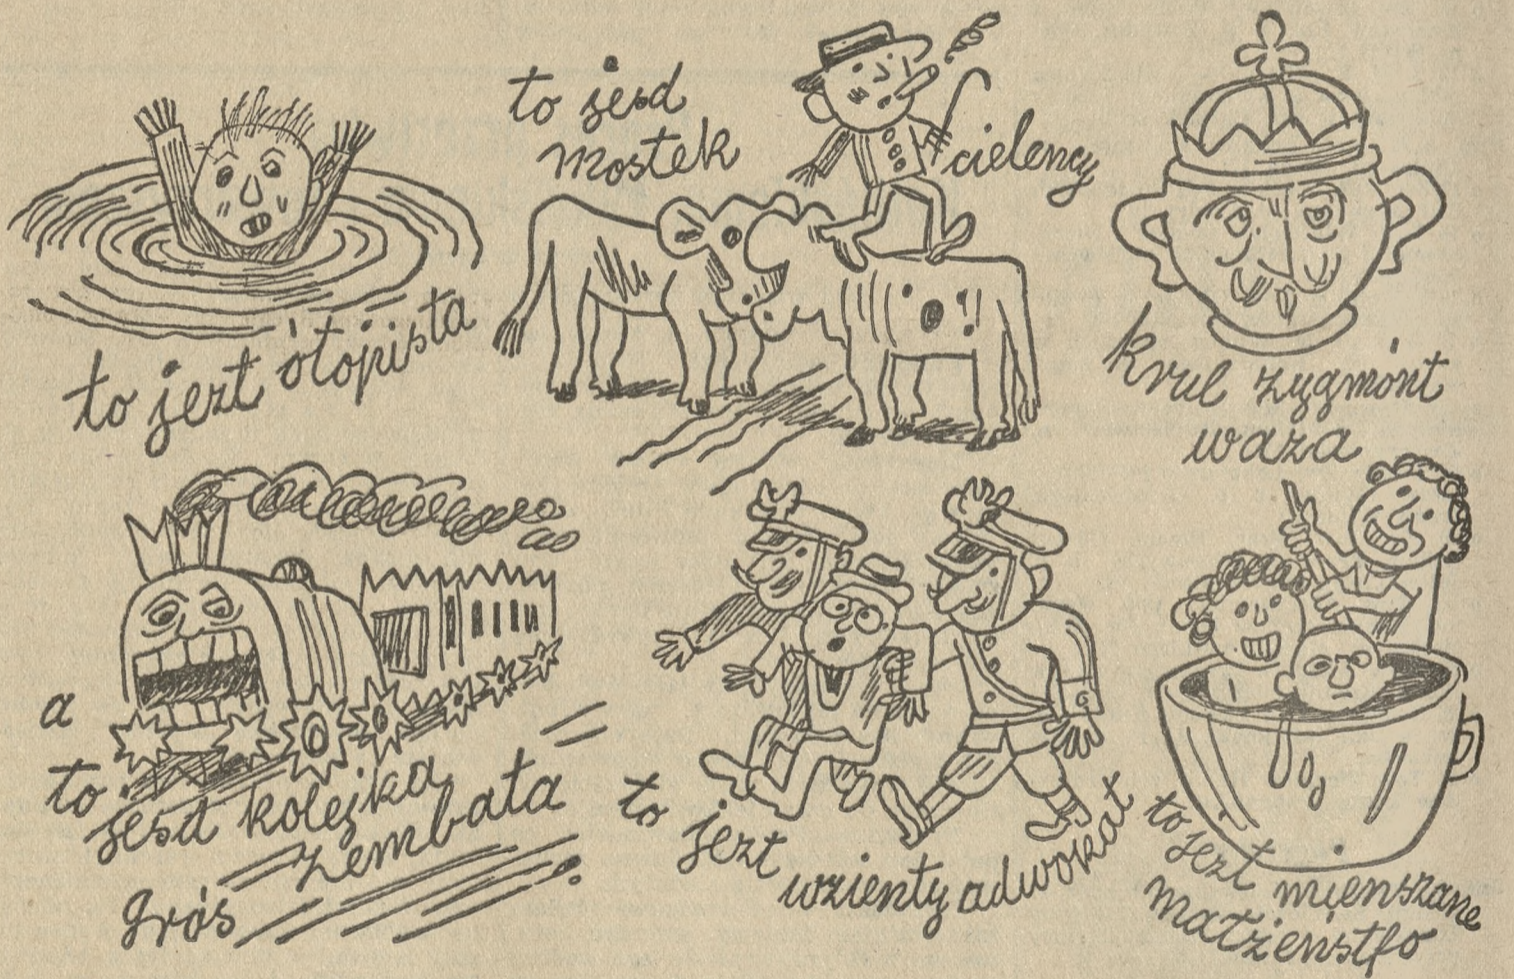 to jezt ótopista
to jesd
mostek
cielency
krul zygmónt
waza
a
to jesd kolejka
zembata
grós
to jezt wzienty adwokat
to jezt mienszane
matżenstfo